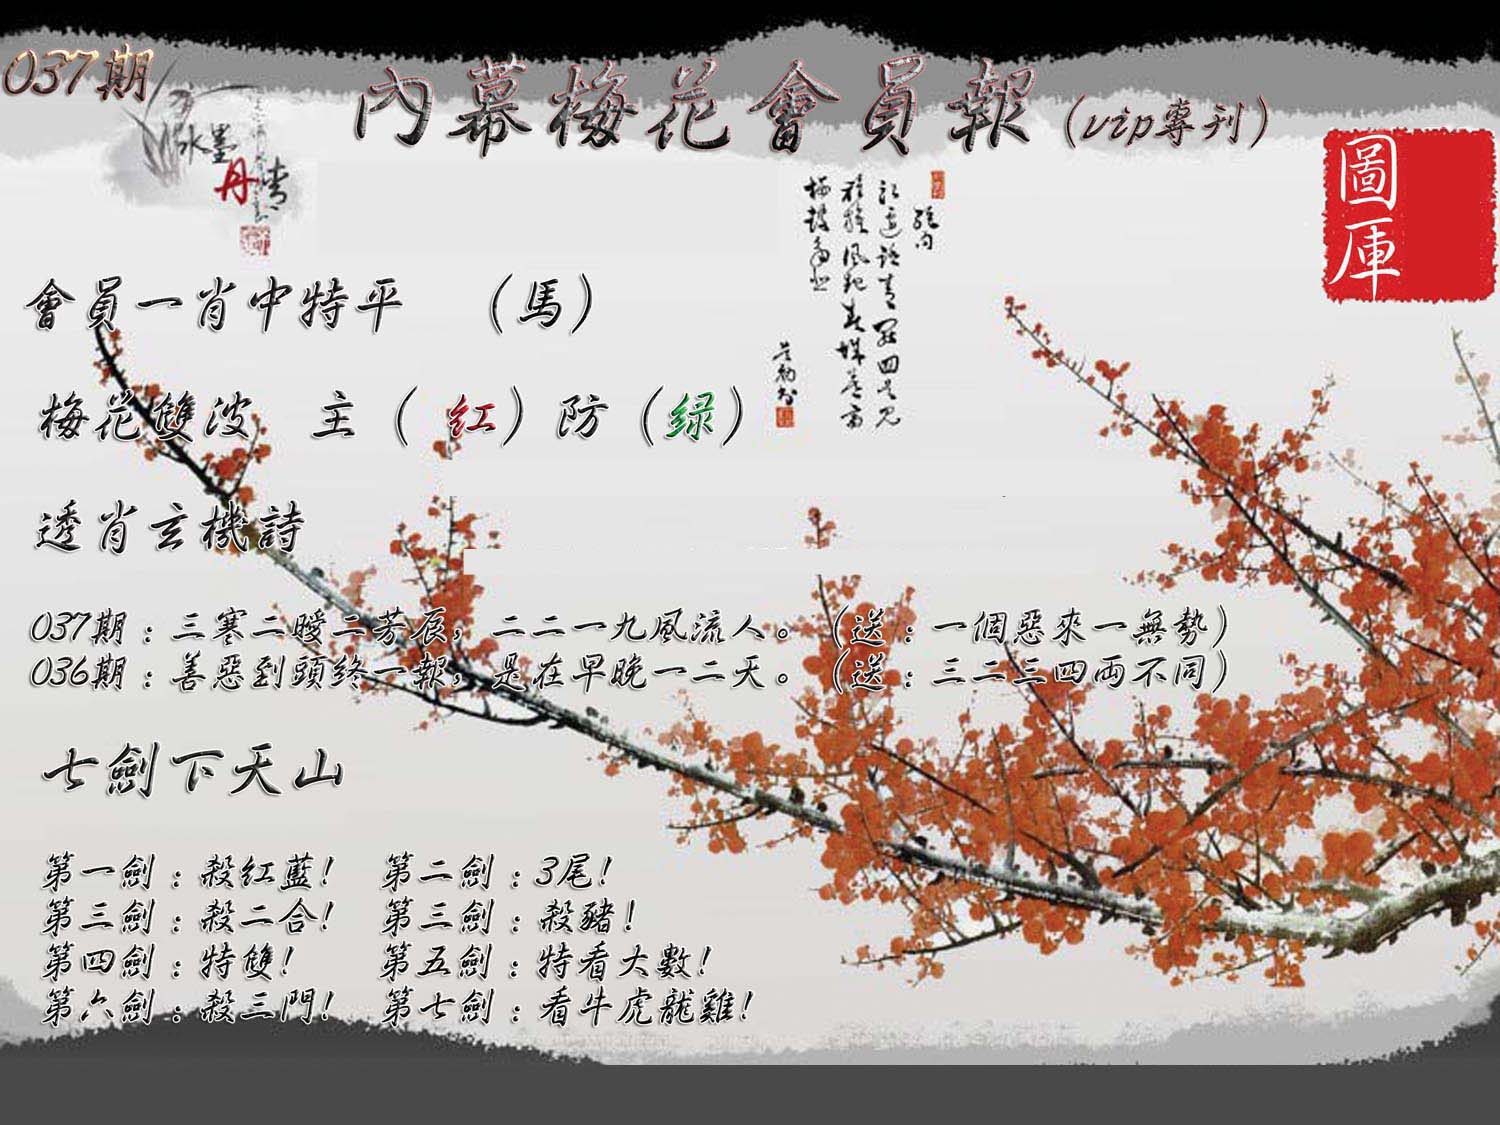 037期
內幕梅花會員報（vip專刊）
水墨
丹青
圖庫
會員一肖中特平 （馬）
梅花雙波 主（ 紅）防（绿）
透肖玄機詩
037期：三寒二曖二芳辰，二二一九風流人。（送：一個惡來一無勢）
036期：善惡到頭終一報，是在早晚一二天。（送：三二三四両不同）
七劍下天山
第一劍：殺紅藍！ 第二劍：3尾！
第三劍：殺二合！ 第三劍：殺豬！
第四劍：特雙！ 第五劍：特看大數！
第六劍：殺三門！ 第七劍：看牛虎龍雞！